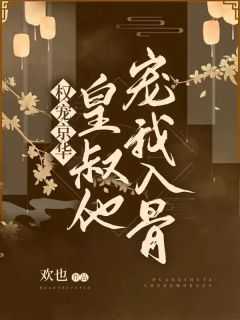 权宠京华
皇叔他
宠我入骨
欢也
作品